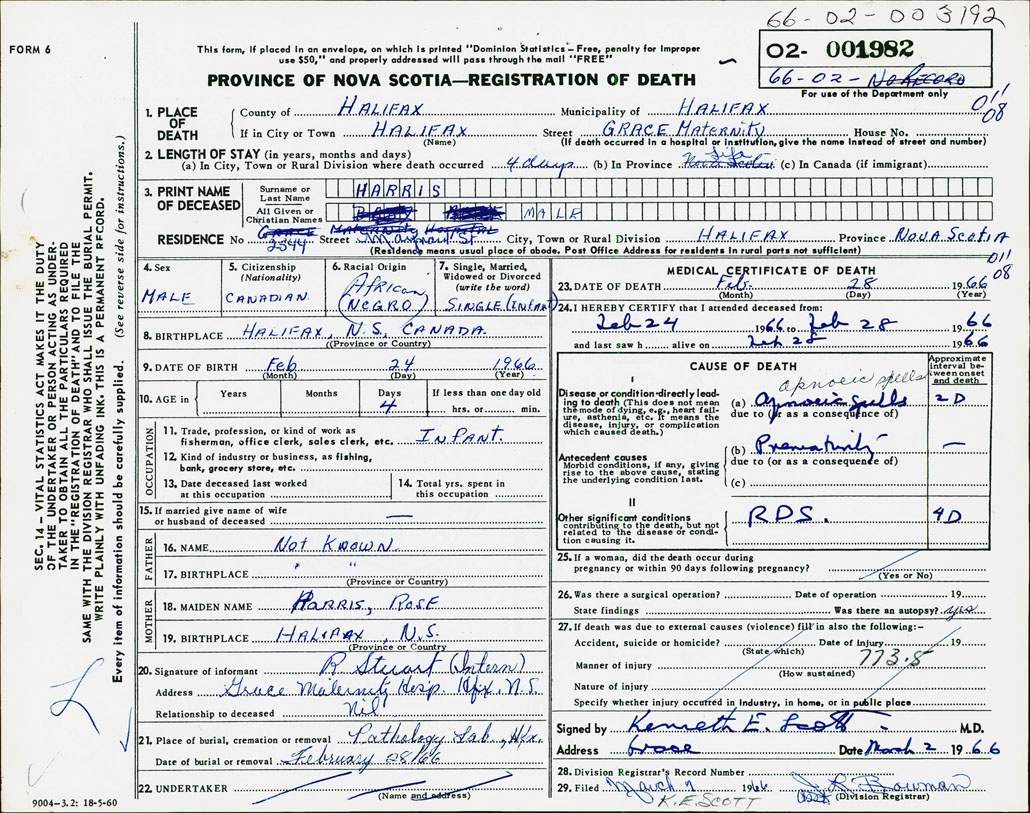 66-02-003192
FORM 6
This form, if placed in an envelope, on which is printed "Dominion Statistics—Free, penalty for improper
use $50," and properly addressed will pass through the mail "FREE"
02- 001982
66-02- No Record
For use of the Department only
PROVINCE OF NOVA SCOTIA—REGISTRATION OF DEATH
011
08
1. PLACE OF DEATH
County of HALIFAX Municipality of HALIFAX
If in City or Town HALIFAX Street GRACE MATERNITY House No.
(Name) (If death occurred in a hospital or institution, give the name instead of street and number)
2. LENGTH OF STAY (in years, months and days)
(a) In City, Town or Rural Division where death occurred 4 days (b) In Province Life Nova Scotia (c) In Canada (if immigrant)
3. PRINT NAME OF DECEASED
Surname or Last Name HARRIS
All Given or Christian Names MALE
GRACE MATERNITY HOSPITAL
RESIDENCE No 2544 Street Maynard St City, Town or Rural Division HALIFAX Province NOVA SCOTIA
(Residence means usual place of abode. Post Office Address for residents in rural parts not sufficient)
011
08
4. Sex
MALE
5. Citizenship
(Nationality)
CANADIAN
6. Racial Origin
African
(NEGRO)
7. Single, Married,
Widowed or Divorced
(write the word)
SINGLE (INFANT)
8. BIRTHPLACE HALIFAX, N.S., CANADA.
(Province or Country)
9. DATE OF BIRTH Feb 24 1966
(Month) (Day) (Year)
10. AGE in
Years
Months
Days
4
If less than one day old
hrs. or min.
OCCUPATION
11. Trade, profession, or kind of work as
fisherman, office clerk, sales clerk, etc. INFANT.
12. Kind of industry or business, as fishing,
bank, grocery store, etc.
13. Date deceased last worked
at this occupation
14. Total yrs. spent in
this occupation
15. If married give name of wife
or husband of deceased —
FATHER
16. NAME NOT KNOWN
17. BIRTHPLACE " "
(Province or Country)
MOTHER
18. MAIDEN NAME HARRIS, ROSE
19. BIRTHPLACE HALIFAX, N.S.
(Province or Country)
20. Signature of informant R Stuart (Intern)
Address Grace Maternity Hosp. Hfx, N.S.
Relationship to deceased Nil
21. Place of burial, cremation or removal Pathology Lab, Hfx.
Date of burial or removal February 28/66
22. UNDERTAKER
(Name and address)
MEDICAL CERTIFICATE OF DEATH
23. DATE OF DEATH Feb. 28 1966
(Month) (Day) (Year)
24. I HEREBY CERTIFY that I attended deceased from:
Feb 24 1966 to Feb 28 1966
and last saw h alive on Feb 28 1966
CAUSE OF DEATH
Approximate
interval be-
tween onset
and death
I
apnoeic spells
Disease or condition directly lead-
ing to death (This does not mean
the mode of dying, e.g., heart fail-
ure, asthenia, etc. It means the
disease, injury, or complication
which caused death.)
(a) Apnoeic spells 2 D
due to (or as a consequence of)
(b) Prematurity —
due to (or as a consequence of)
Antecedent causes
Morbid conditions, if any, giving
rise to the above cause, stating
the underlying condition last.
(c)
II
Other significant conditions
contributing to the death, but not
related to the disease or condi-
tion causing it.
RDS. 4D
25. If a woman, did the death occur during
pregnancy or within 90 days following pregnancy?
(Yes or No)
26. Was there a surgical operation? Date of operation 19
State findings Was there an autopsy? yes
27. If death was due to external causes (violence) fill in also the following:-
Accident, suicide or homicide? Date of injury 19
(State which)
773.5
Manner of injury
(How sustained)
Nature of injury
Specify whether injury occurred in industry, in home, or in public place
Signed by Kenneth E. Scott M.D.
Address Grace Date March 2 1966
28. Division Registrar's Record Number
29. Filed March 7 1966 Bowman
(Division Registrar)
K.E. SCOTT
9004-3.2: 18-5-60
SEC. 14—VITAL STATISTICS ACT MAKES IT THE DUTY
OF THE UNDERTAKER OR PERSON ACTING AS UNDER-
TAKER TO OBTAIN ALL THE PARTICULARS REQUIRED
IN THE "REGISTRATION OF DEATH" AND TO FILE THE
SAME WITH THE DIVISION REGISTRAR WHO SHALL ISSUE THE BURIAL PERMIT.
WRITE PLAINLY WITH UNFADING INK. THIS IS A PERMANENT RECORD.
Every item of information should be carefully supplied. (See reverse side for instructions.)